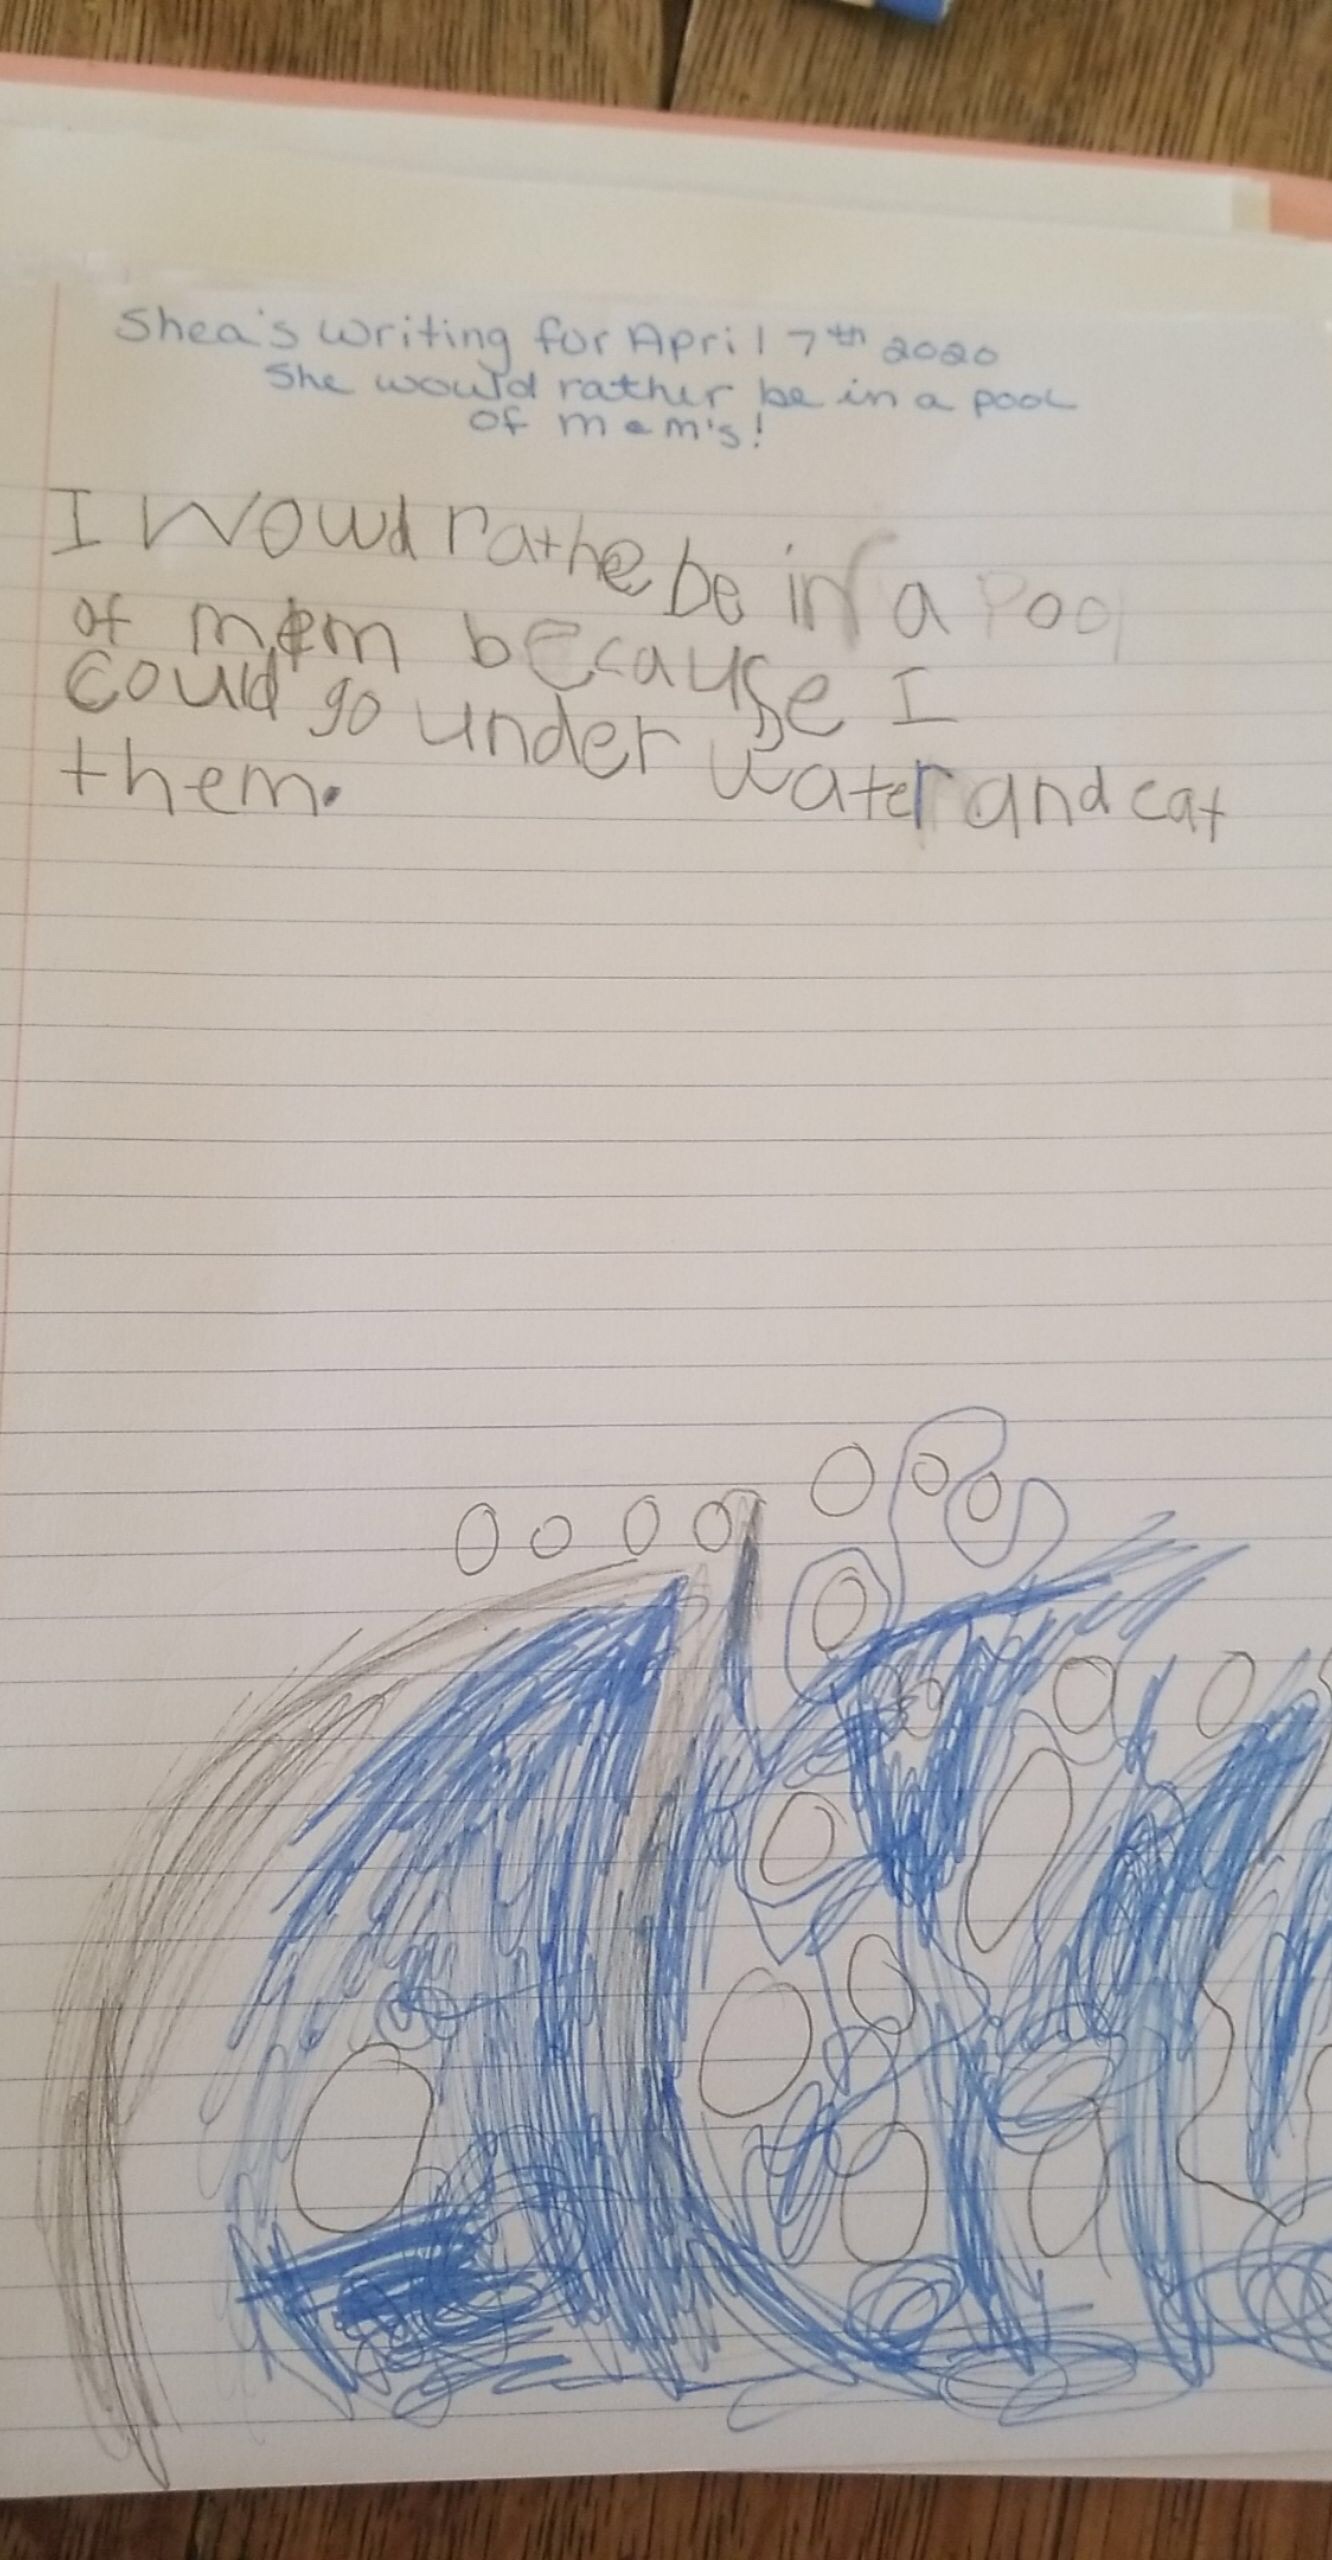 Shea's writing for April 7th 2020
She would rather be in a pool
of m&m's!
I Wowd rathe be in a Pool
of m&m because I
could go under water and eat
them.